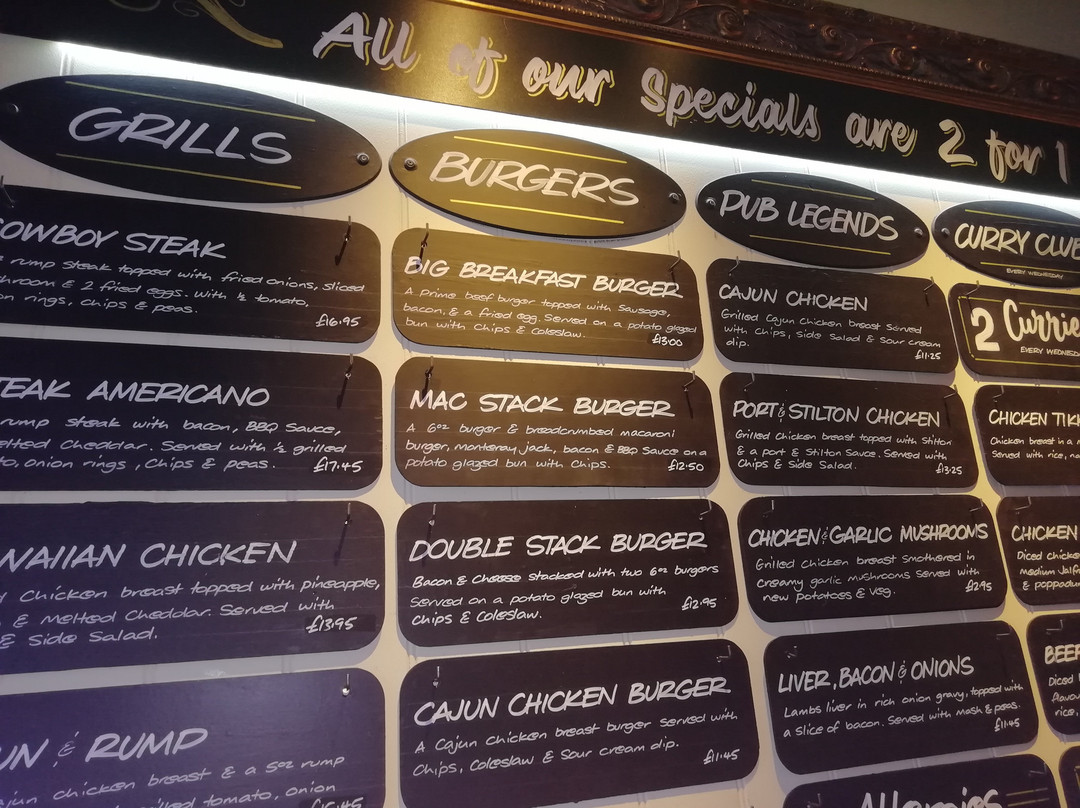 All of our Specials are 2 for 1
GRILLS
COWBOY STEAK
rump steak topped with fried onions, sliced
& 2 fried eggs. With ½ tomato,
rings, chips & peas.
£16.95
AMERICANO
rump steak with bacon, BBQ Sauce,
Cheddar. Served with ½ grilled
onion rings, Chips & peas.
£17.45
CHICKEN
Chicken breast topped with pineapple,
& melted Cheddar. Served with
& Side Salad.
£13.95
& RUMP
chicken breast & a 5oz rump
tomato, onion
BURGERS
BIG BREAKFAST BURGER
A prime beef burger topped with Sausage,
bacon, & a fried egg. Served on a potato glazed
bun with Chips & Coleslaw.
£13.00
MAC STACK BURGER
A 6oz burger & breadcrumbed macaroni
burger, monterey jack, bacon & BBQ Sauce on a
potato glazed bun with Chips.
£12.50
DOUBLE STACK BURGER
Bacon & Cheese stacked with two 6oz burgers
Served on a potato glazed bun with
Chips & Coleslaw.
£12.95
CAJUN CHICKEN BURGER
A Cajun Chicken breast burger Served with
Chips, Coleslaw & Sour cream dip.
£11.45
PUB LEGENDS
CAJUN CHICKEN
Grilled Cajun Chicken breast Served
with chips, side Salad & Sour cream
dip.
£11.25
PORT & STILTON CHICKEN
Grilled Chicken breast topped with Stilton
& a port & Stilton Sauce. Served with
Chips & Side Salad.
£13.25
CHICKEN & GARLIC MUSHROOMS
Grilled Chicken breast Smothered in
creamy garlic mushrooms Served with
new potatoes & veg.
LIVER, BACON & ONIONS
Lambs liver in rich onion gravy, topped with
a slice of bacon. Served with mash & peas.
£11.45
CURRY CLUB
EVERY WEDNESDAY
2 Currie
EVERY WEDNESD
CHICKEN TIK
Chicken breast in a
Served with rice,
CHICKEN
Diced chicken
medium Jalf
& poppadu
BEEF
Diced
rice,